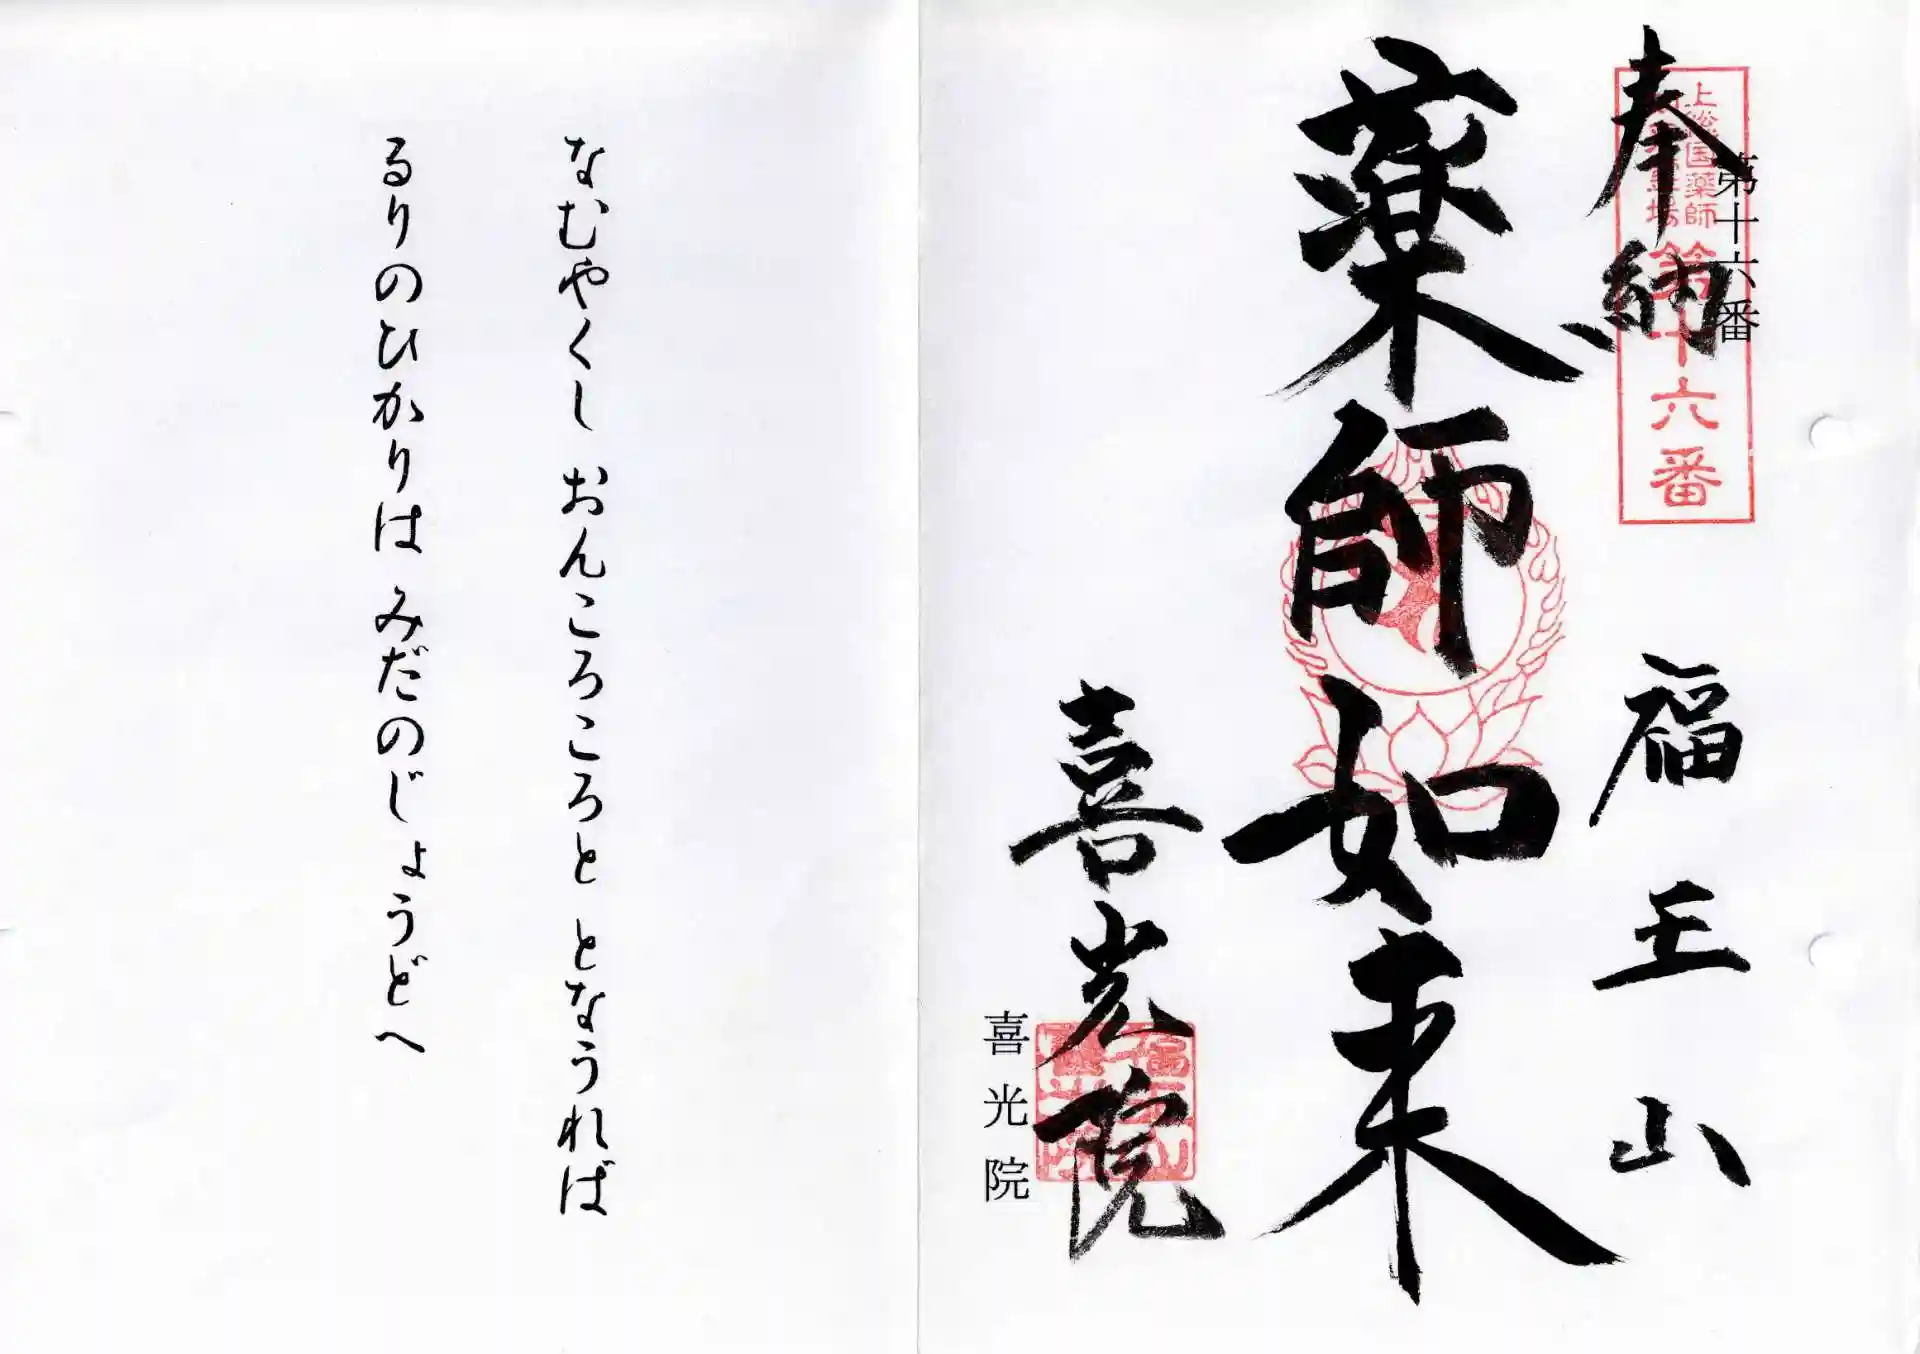 奉納
第十六番
上総国薬師
霊場
第十六番
福王山
薬師如来
喜光院
喜光院
なむやくし おんころころと となうれば
るりのひかりは みだのじょうどへ